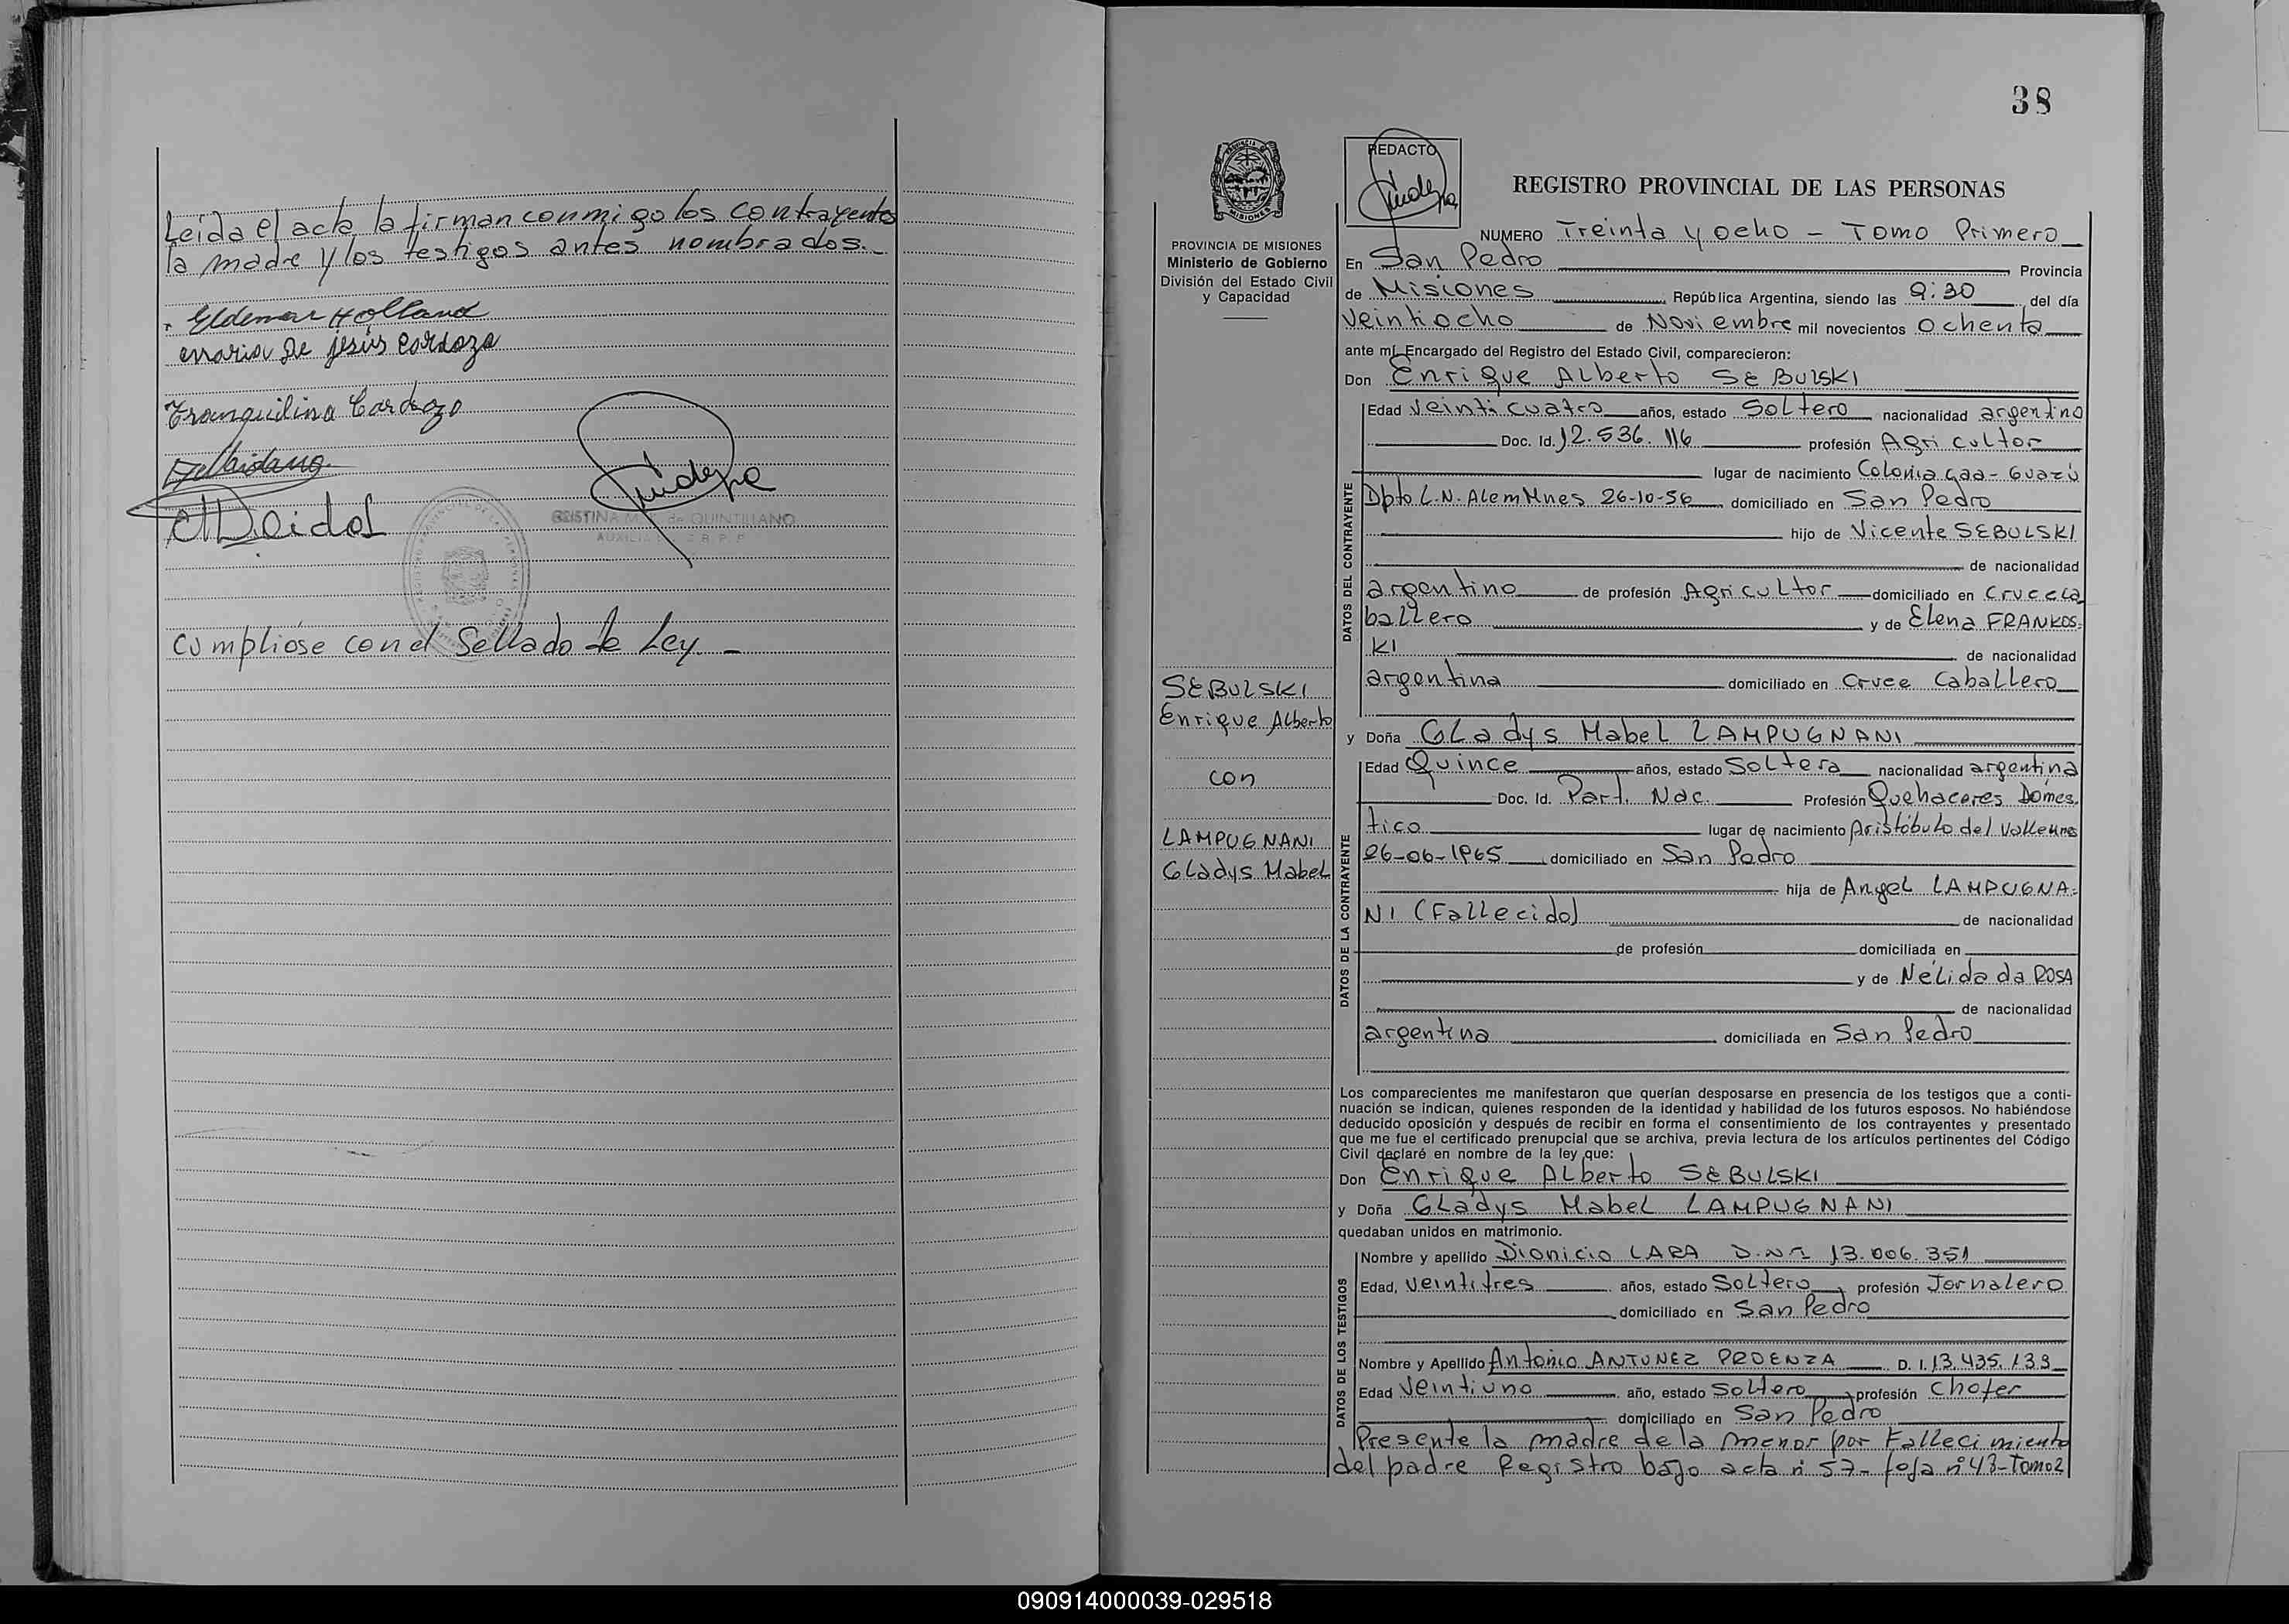 Leida el acta la firman conmigo los contrayentes
la madre y los testigos antes nombrados.-
Eldemar Holland
maria De jesús cardozo
Tranquilina Cardozo
CRISTINA de QUINTILLANO
AUXILIAR
Cumplióse con el Sellado de Ley -
38
REDACTO
REGISTRO PROVINCIAL DE LAS PERSONAS
MISIONES
PROVINCIA DE MISIONES
Ministerio de Gobierno
División del Estado Civil
y Capacidad
NUMERO Treinta y ocho - Tomo Primero
En San Pedro Provincia
de Misiones República Argentina, siendo las 9:30 del día
Veintiocho de Noviembre mil novecientos ochenta
ante mí, Encargado del Registro del Estado Civil, comparecieron:
Don Enrique Alberto SEBULSKI
DATOS DEL CONTRAYENTE
Edad Veinticuatro años, estado Soltero nacionalidad argentino
Doc. Id. 12.536.116 profesión Agricultor
lugar de nacimiento Colonia Caa-Guazú
Dpto L.N. Alem Mnes 26-10-56 domiciliado en San Pedro
hijo de Vicente SEBULSKI
de nacionalidad
argentino de profesión Agricultor domiciliado en Cruce Ca
ballero y de Elena FRANKOS-
KI de nacionalidad
argentina domiciliado en Cruce Caballero
SEBULSKI
Enrique Alberto
con
LAMPUGNANI
Gladys Mabel
y Doña Gladys Mabel LAMPUGNANI
DATOS DE LA CONTRAYENTE
Edad Quince años, estado Soltera nacionalidad argentina
Doc. Id. Part. Nac. Profesión Quehaceres Domes.
tico lugar de nacimiento Aristóbulo del Valle Mnes
26-06-1965 domiciliado en San Pedro
hija de Angel LAMPUGNA-
NI (Fallecido) de nacionalidad
de profesión domiciliada en
y de Nélida da ROSA
de nacionalidad
argentina domiciliada en San Pedro
Los comparecientes me manifestaron que querían desposarse en presencia de los testigos que a conti-
nuación se indican, quienes responden de la identidad y habilidad de los futuros esposos. No habiéndose
deducido oposición y después de recibir en forma el consentimiento de los contrayentes y presentado
que me fue el certificado prenupcial que se archiva, previa lectura de los artículos pertinentes del Código
Civil declaré en nombre de la ley que:
Don Enrique Alberto SEBULSKI
y Doña Gladys Mabel LAMPUGNANI
quedaban unidos en matrimonio.
DATOS DE LOS TESTIGOS
Nombre y apellido Dionicio LARA D.N.I 13.006.351
Edad, Veintitres años, estado Soltero profesión Jornalero
domiciliado en San Pedro
Nombre y Apellido Antonio ANTUNEZ PROENZA D. I. 13.435.139
Edad Veintiuno año, estado Soltero profesión Chofer
domiciliado en San Pedro
Presente la madre de la menor por Fallecimiento
del padre Registro bajo acta nº 57- foja nº 43-Tomo 2
090914000039-029518